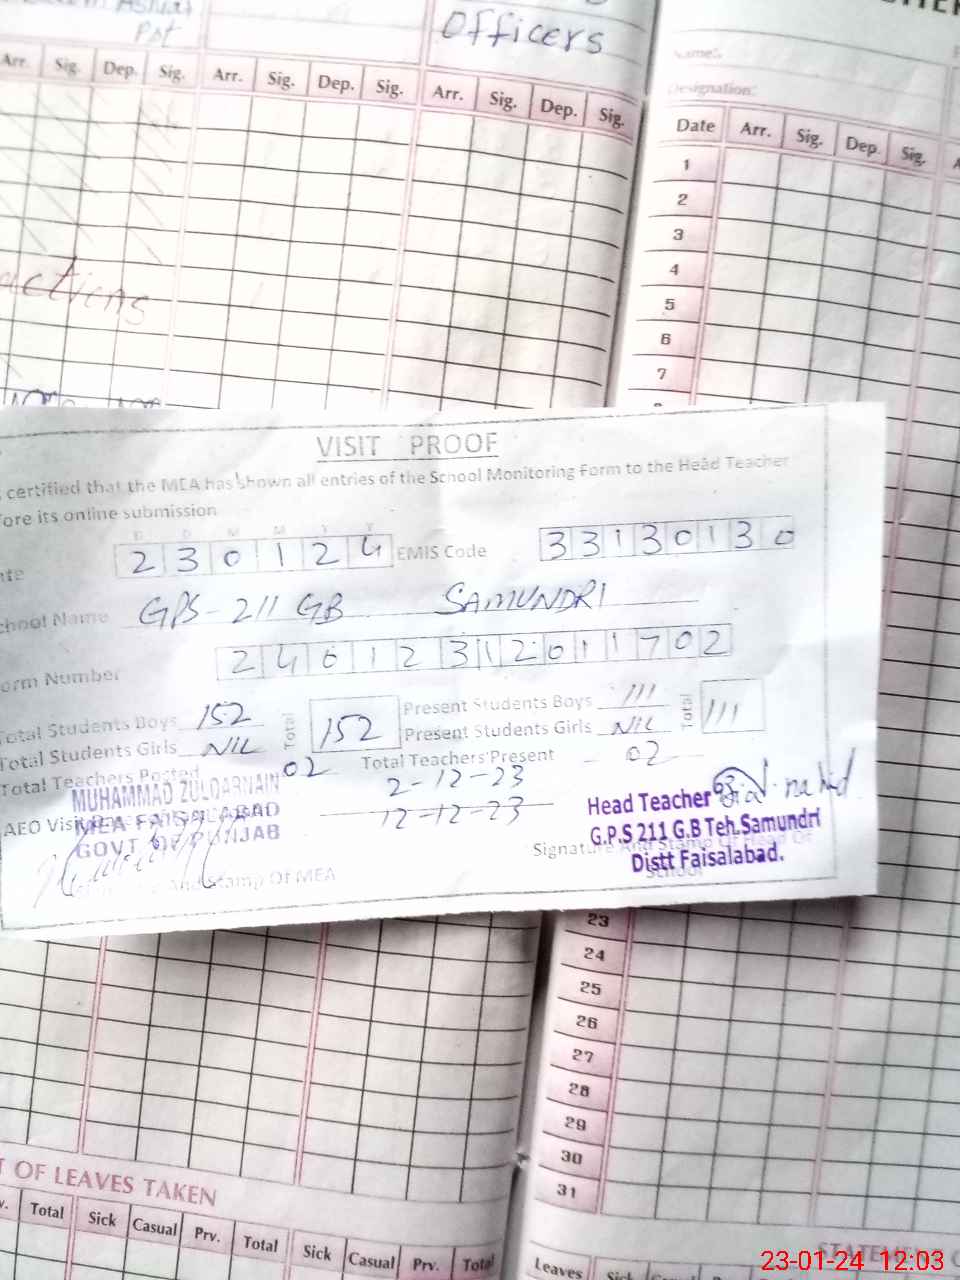 Pst
Officers
Arr. Sig. Dep. Sig. Arr. Sig. Dep. Sig. Arr. Sig. Dep. Sig.
Name:
Designation:
Date Arr. Sig. Dep. Sig.
1
2
3
4
5
6
7
VISIT PROOF
certified that the MEA has shown all entries of the School Monitoring Form to the Head Teacher
ore its online submission
D D M M Y Y
230124 EMIS Code 33130130
School Name GPS - 211 GB SAMUNDRI
orm Number 24012312011702
Total Students Boys 152 Total 152 Present Students Boys 111 Total 111
Total Students Girls NIL Present Students Girls NIL
Total Teachers Posted 02 Total Teachers Present 02
MUHAMMAD ZULQARNAIN
MEA FAISALABAD
GOVT OF PUNJAB
AEO Visit
2-12-23
12-12-23
Head Teacher
G.P.S 211 G.B Teh.Samundri
Distt Faisalabad.
Signature And Stamp Of Head Of
School
And Stamp Of MEA
23
24
25
26
27
28
29
30
31
T OF LEAVES TAKEN
v. Total Sick Casual Prv. Total Sick Casual Prv. Total
STATEMENT
Leaves Sick Casual Prv. Total
23-01-24 12:03